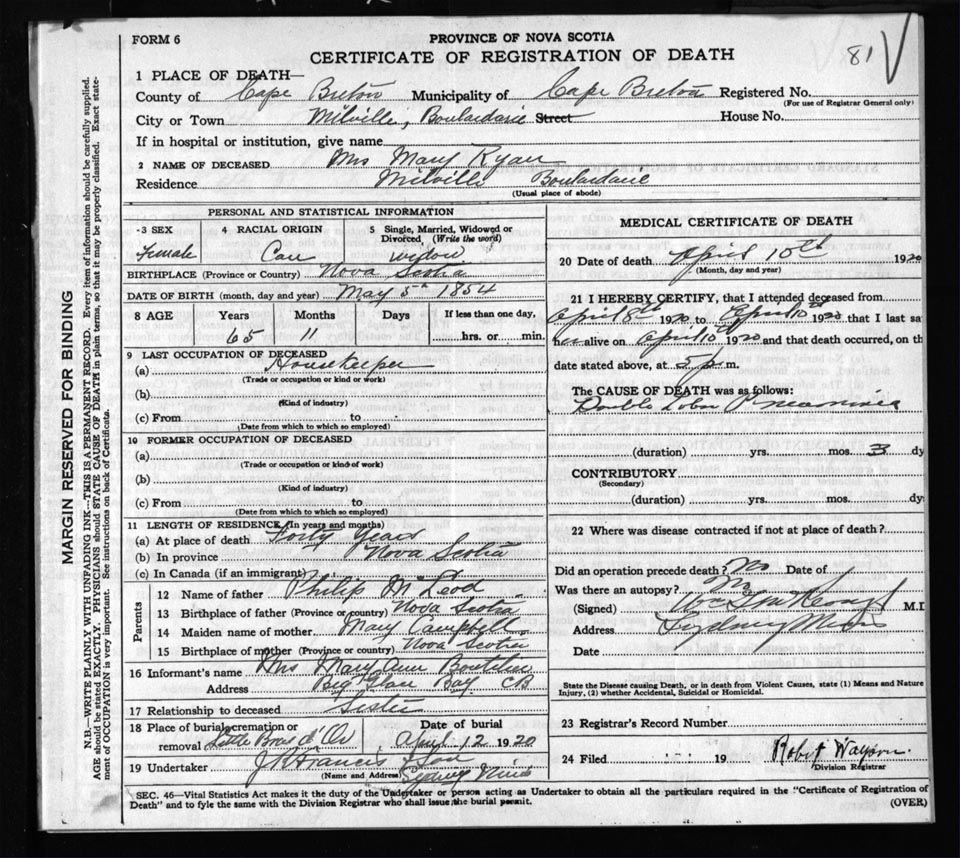 FORM 6
PROVINCE OF NOVA SCOTIA
CERTIFICATE OF REGISTRATION OF DEATH
81
1 PLACE OF DEATH—
County of Cape Breton Municipality of Cape Breton Registered No.
(For use of Registrar General only)
City or Town Milville, Boulardarie Street House No.
If in hospital or institution, give name
2 NAME OF DECEASED Mrs Mary Ryan
Residence Milville Boulardarie
(Usual place of abode)
MARGIN RESERVED FOR BINDING
N.B.—WRITE PLAINLY, WITH UNFADING INK—THIS IS A PERMANENT RECORD. Every item of information should be carefully supplied.
AGE should be stated EXACTLY. PHYSICIANS should STATE CAUSE OF DEATH in plain terms, so that it may be properly classified. Exact state-
ment of OCCUPATION is very important. See instructions on back of Certificate.
PERSONAL AND STATISTICAL INFORMATION
3 SEX 4 RACIAL ORIGIN 5 Single, Married, Widowed or
Divorced (Write the word)
Female Can widow
BIRTHPLACE (Province or Country) Nova Scotia
DATE OF BIRTH (month, day and year) May 5th 1854
8 AGE Years Months Days If less than one day,
65 11 hrs. or min.
9 LAST OCCUPATION OF DECEASED
(a) Housekeeper
(Trade or occupation or kind or work)
(b)
(Kind of industry)
(c) From to
(Date from which to which so employed)
10 FORMER OCCUPATION OF DECEASED
(a)
(Trade or occupation or kind of work)
(b)
(Kind of industry)
(c) From to
(Date from which to which so employed)
11 LENGTH OF RESIDENCE (In years and months)
(a) At place of death Forty Years
(b) In province Nova Scotia
(c) In Canada (if an immigrant)
Parents
12 Name of father Philip McLeod
13 Birthplace of father (Province or country) Nova Scotia
14 Maiden name of mother Mary Campbell
15 Birthplace of mother (Province or country) Nova Scotia
16 Informant's name Mrs Mary Ann Boutilier
Address Big Glace Bay CB
17 Relationship to deceased Sister
18 Place of burial, cremation or Date of burial
removal Little Bras d'Or April 12 1920
19 Undertaker J R Francis & Son
(Name and Address) Sydney Mines
MEDICAL CERTIFICATE OF DEATH
20 Date of death April 10th 1920
(Month, day and year)
21 I HEREBY CERTIFY, that I attended deceased from
April 8th 1920 to April 10th 1920 that I last sa
her alive on April 10th 1920 and that death occurred, on th
date stated above, at 5 p m.
The CAUSE OF DEATH was as follows:
Double Lobar Pneumonia
(duration) yrs. mos. 3 dy
CONTRIBUTORY
(Secondary)
(duration) yrs. mos. dy
22 Where was disease contracted if not at place of death?
Did an operation precede death? No Date of
Was there an autopsy? No
(Signed) M.D
Address Sydney Mines
Date
State the Disease causing Death, or in death from Violent Causes, state (1) Means and Nature
Injury, (2) whether Accidental, Suicidal or Homicidal.
23 Registrar's Record Number
24 Filed 19 Robert
Division Registrar
SEC. 46—Vital Statistics Act makes it the duty of the Undertaker or person acting as Undertaker to obtain all the particulars required in the "Certificate of Registration of
Death" and to fyle the same with the Division Registrar who shall issue the burial permit. (OVER)